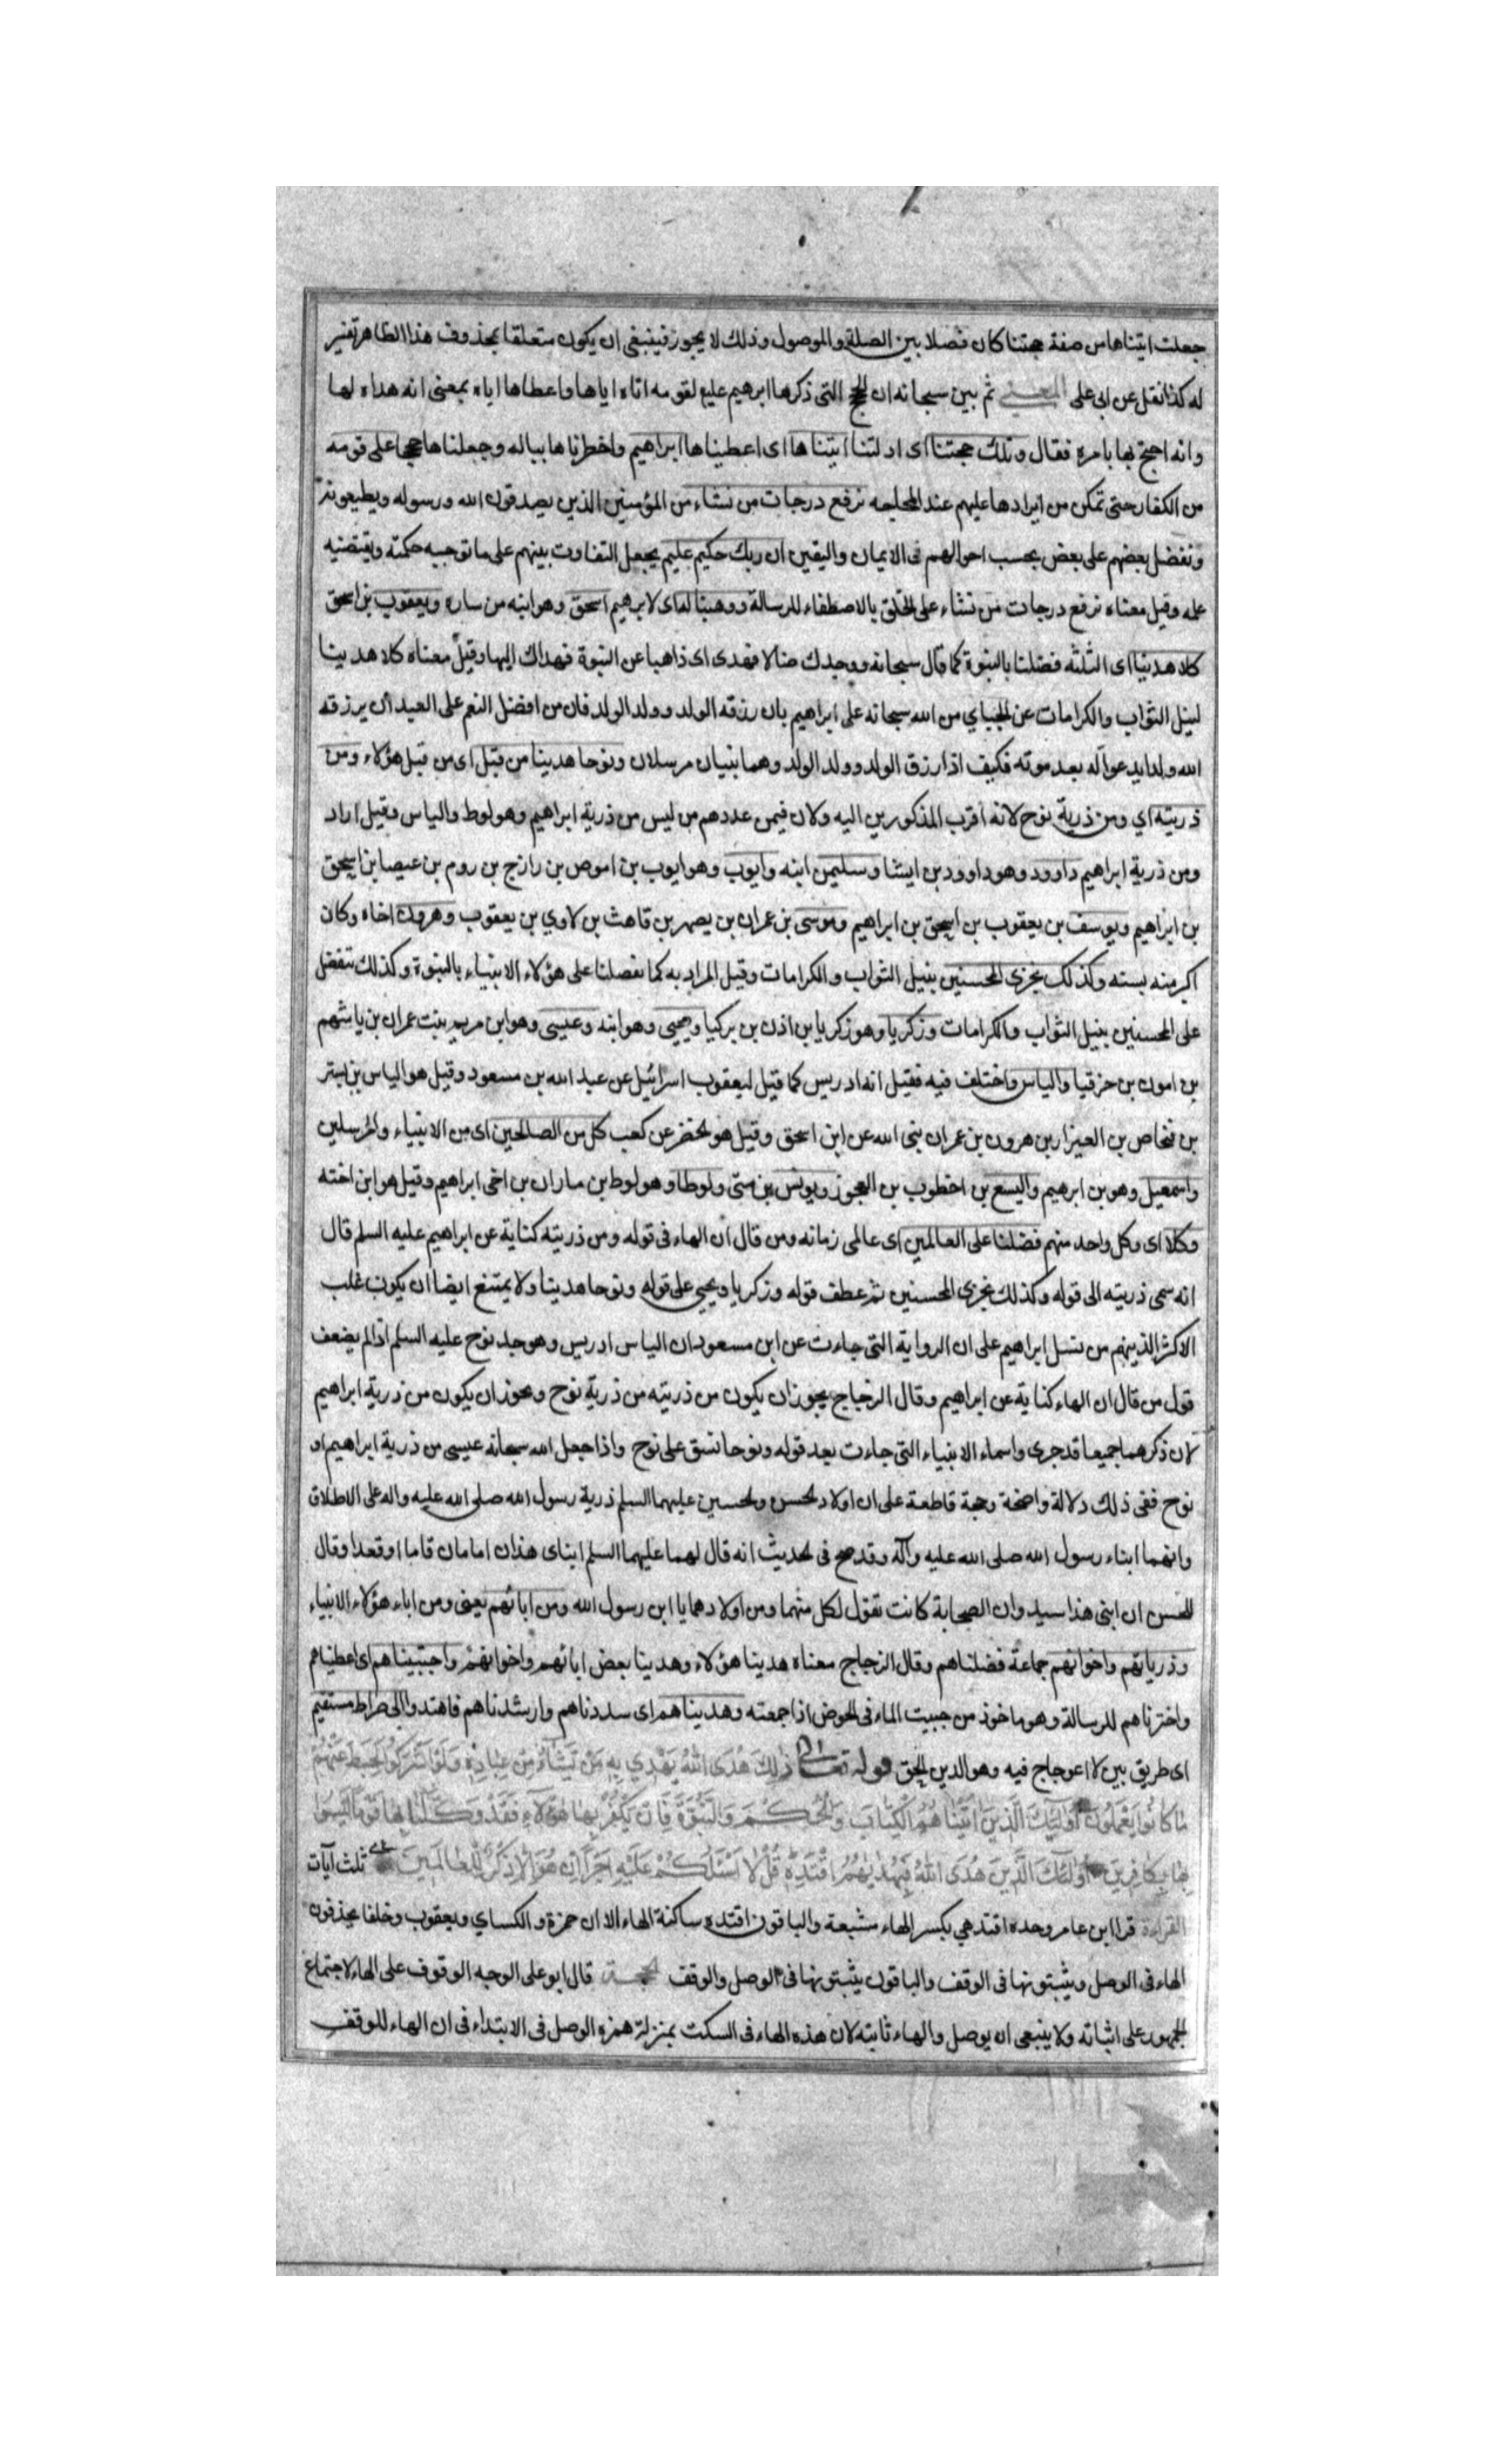 جعلت اتيناها من صفة حجتنا كان فصلا بين الصلة والموصول وذلك لا يجوز فينبغى ان يكون متعلقا بمحذوف هذا الظاهر تفسير
له كذا نقل عن ابى على المعنى ثم بين سبحانه ان الحجج التى ذكرها ابرهيم عليع لقومه اتاه اياها واعطاها اياه بمعنى انه هداه لها
وانه احتج بها بامره فقال وتلك حجتنا اى ادلتنا اتيناها اى اعطيناها ابراهيم واخطرناها بباله وجعلناها حججا على قومه
من الكفار حتى تمكن من ايرادها عليهم عند المحاجه نرفع درجات من نشاء من المؤمنين الذين يصدقون الله ورسوله ويطيعونه
ونفضل بعضهم على بعض بحسب احوالهم فى الايمان واليقين ان ربك حكيم عليم يجعل التفاوت بينهم على ما توجبه حكمته ويقتضيه
علمه وقيل معناه نرفع درجات من نشاء على الخلق بالاصطفاء للرسالة ووهبنا له اى لابرهيم اسحق وهو ابنه من ساره ويعقوب بن اسحق
كلا هدينا اى الثلثه فضلنا بالنبوة كما قال سبحانه ووجدك ضالا فهدى اى ذاهبا عن النبوة فهداك اليها وقيل معناه كلا هدينا
لنيل الثواب والكرامات عن الجبايي من الله سبحانه على ابراهيم بان رزقه الولد وولد الولد فان من افضل النعم على العبد ان يرزقه
الله ولدا يدعوا له بعد موته فكيف اذا رزق الولد وولد الولد وهما نبيان مرسلان ونوحا هدينا من قبل اى من قبل هؤلاء ومن
ذريته اي ومن ذرية نوح لانه اقرب المذكورين اليه ولان فيمن عددهم من ليس من ذرية ابراهيم وهو لوط والياس وقيل اراد
ومن ذرية ابراهيم داوود وهو داوود بن ايشا وسليمن ابنه وايوب وهو ايوب بن اموص بن رازج بن روم بن عيصا بن اسحق
بن ابراهيم ويوسف بن يعقوب بن اسحق بن ابراهيم وموسى بن عمران بن يصهر بن قاهث بن لاوي بن يعقوب وهرون اخاه وكان
اكبر منه بسنه وكذلك نجزى المحسنين بنيل الثواب والكرامات وقيل المراد به كما تفضلنا على هؤلاء الانبياء بالنبوة وكذلك نتفضل
على المحسنين بنيل الثواب والكرامات وزكريا وهو زكريا بن اذن بن بركيا ويحيى وهو ابنه وعيسى وهو ابن مريم بنت عمران بن ياشهم
بن امون بن حزقيا والياس واختلف فيه فقيل انه ادريس كما قيل ليعقوب اسرائيل عن عبد الله بن مسعود وقيل هو الياس بن بستر
بن فنحاص بن العيزار بن هرون بن عمران نبى الله عن ابن اسحق وقيل هو الخضر عن كعب كل من الصالحين اى من الانبياء والمرسلين
واسمعيل وهو بن ابرهيم واليسع بن اخطوب بن العجوز ويونس بن متى ولوطا وهو لوط بن هاران بن اخى ابراهيم وقيل هو ابن اخته
وكلا اى وكل واحد منهم فضلنا على العالمين اى عالمى زمانه ومن قال ان الهاء فى قوله ومن ذريته كناية عن ابراهيم عليه السلم قال
انه سمى ذريته الى قوله وكذلك نجزى المحسنين ثم عطف قوله وزكريا ويحيى على قوله ونوحا هدينا ولا يمتنع ايضا ان يكون غلب
الاكثر الذين هم من نسل ابراهيم على ان الرواية التى جاءت عن ابن مسعود ان الياس ادريس وهو جد نوح عليه السلم اذا لم يضعف
قول من قال ان الهاء كناية عن ابراهيم وقال الزجاج يجوز ان يكون من ذريته من ذرية نوح ويجوز ان يكون من ذرية ابراهيم
لان ذكرهما جميعا قد جرى واسماء الانبياء التى جاءت بعد قوله ونوحا نسق على نوح واذا جعل الله سبحانه عيسى من ذرية ابراهيم او
نوح ففى ذلك دلالة واضحة وحجة قاطعة على ان اولاد الحسن والحسين عليهما السلم ذرية رسول الله صلى الله عليه واله على الاطلاق
وانهما ابناء رسول الله صلى الله عليه وآله وقد صح فى الحديث انه قال لهما عليهما السلم ابناى هذان امامان قاما او قعدا وقال
للحسن ان ابنى هذا سيد وان الصحابة كانت تقول لكل منهما ومن اولادهما يا ابن رسول الله ومن ابائهم يعنى ومن اباء هؤلاء الانبياء
وذرياتهم واخوانهم جماعة فضلناهم وقال الزجاج معناه هدينا هؤلاء وهدينا بعض ابائهم واخوانهم واجتبيناهم اى اعطيناهم
واخترناهم للرسالة وهو ماخوذ من جبيت الماء فى الحوض اذا جمعته وهديناهم اى سددناهم وارشدناهم فاهتدوا الى صراط مستقيم
اى طريق بين لا اعوجاج فيه وهو الدين الحق قوله تعالى ذَلِكَ هُدَى اللهُ يَهْدِي بِهِ مَنْ يَشَاءُ مِنْ عِبَادِهِ وَلَوْ اَشْرَكُوا لَحَبِطَ عَنْهُمْ
مَا كَانُوا يَعْمَلُونَ اُولَئِكَ الَّذِينَ اتَيْنَاهُمُ الْكِتَابَ وَالْحُكْمَ وَالنُّبُوَّةَ فَاِنْ يَكْفُرْ بِهَا هٰؤُلَاءِ فَقَدْ وَكَّلْنَا بِهَا قَوْمًا لَيْسُوا
بِهَا بِكَافِرِينَ اُولَئِكَ الَّذِينَ هَدَى اللهُ فَبِهُدٰيهُمُ اقْتَدِهْ قُلْ لَا اَسْئَلُكُمْ عَلَيْهِ اَجْرًا اِنْ هُوَ اِلَّا ذِكْرٰى لِلْعَالَمِينَ ثلث آيات
القراءة قرا ابن عامر وحده اقتدهي بكسر الهاء مشبعة والباقون اقتده ساكنة الهاء الا ان حمزة والكساي ويعقوب وخلفا يحذفون
الهاء فى الوصل ويثبتونها فى الوقف والباقون يثبتونها فى الوصل والوقف الحجة قال ابو على الوجه الوقوف على الهاء لاجتماع
الجمهور على اثباته ولا ينبغى ان يوصل والهاء ثابته لان هذه الهاء فى السكت بمنزلة همزه الوصل فى الابتداء فى ان الهاء للوقف